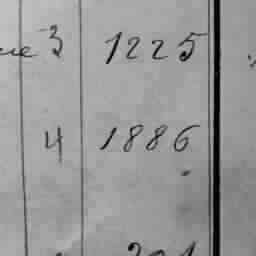 3 1225
4 1886